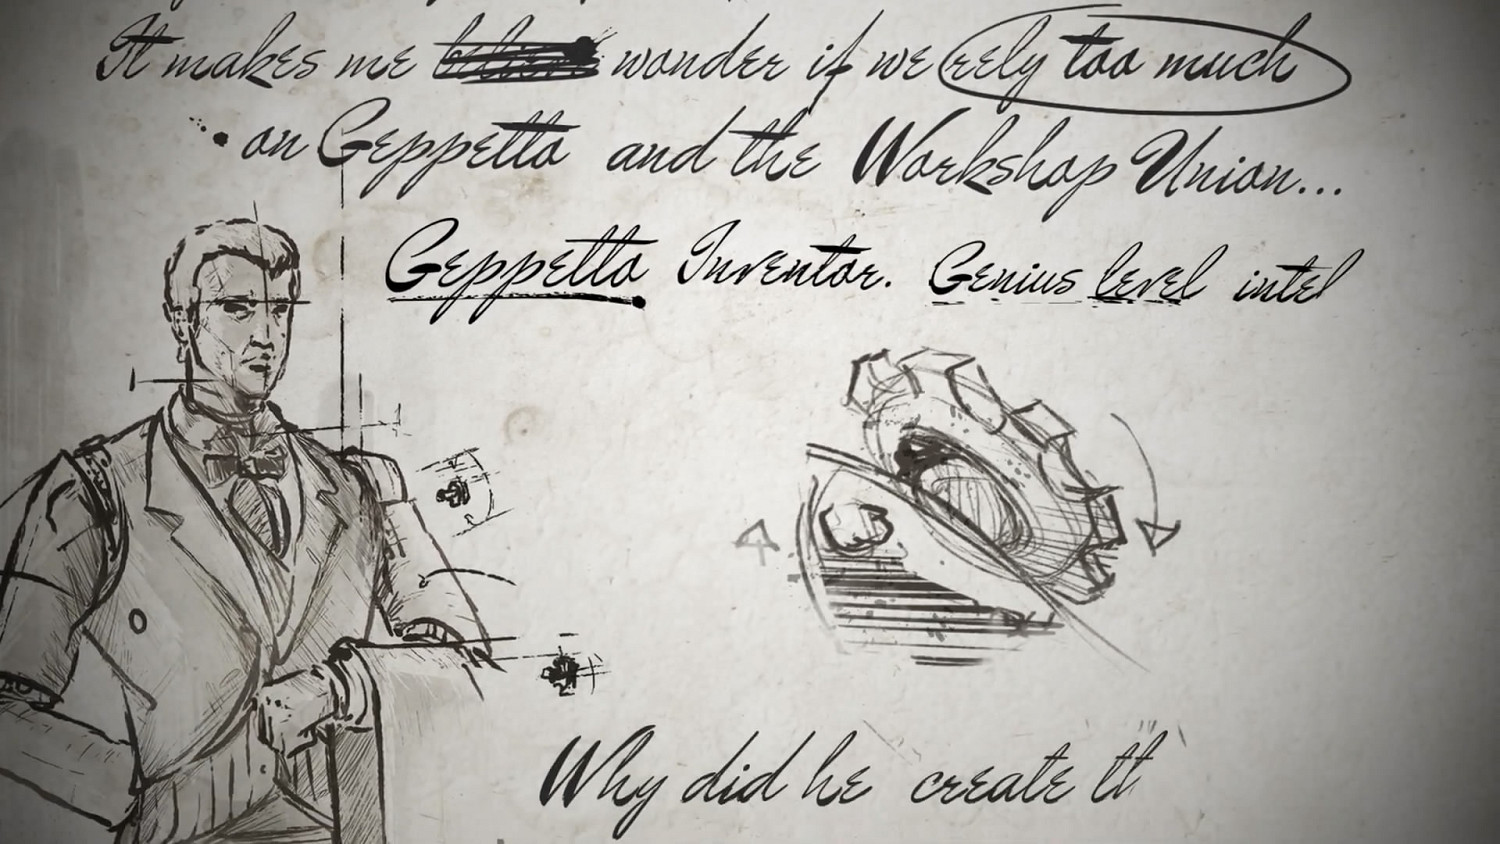 It makes me wonder if we rely too much
on Geppetto and the Workshop Union...
Geppetto Inventor. Genius level intel
Why did he create th